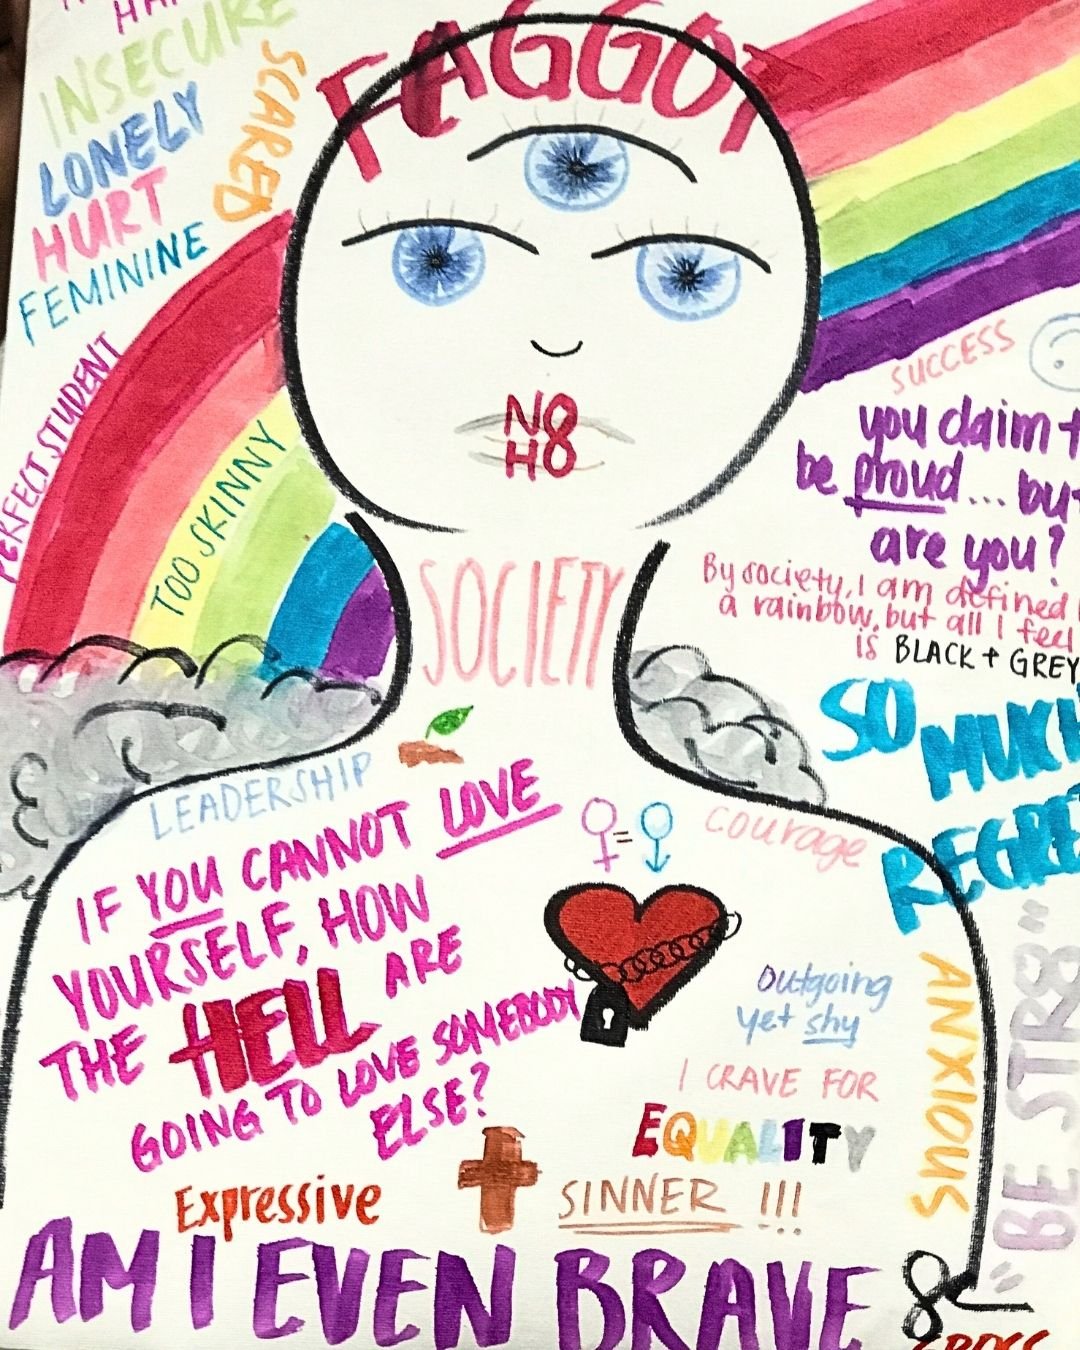 INSECURE
SCARED
LONELY
HURT
FEMININE
PERFECT STUDENT
TOO SKINNY
FAGGOT
NO
H8
SUCCESS
you claim t
be proud... but
are you?
By society, I am defined
a rainbow, but all I feel
is BLACK + GREY
SOCIETY
SO
MUCH
REGRE
LEADERSHIP
courage
IF YOU CANNOT LOVE
YOURSELF, HOW
THE HELL ARE
GOING TO LOVE SOMEBODY
ELSE?
=
outgoing
yet shy
I CRAVE FOR
EQUALITY
ANXIOUS
"BE STR8"
Expressive
SINNER !!!
AM I EVEN BRAVE
GROSS